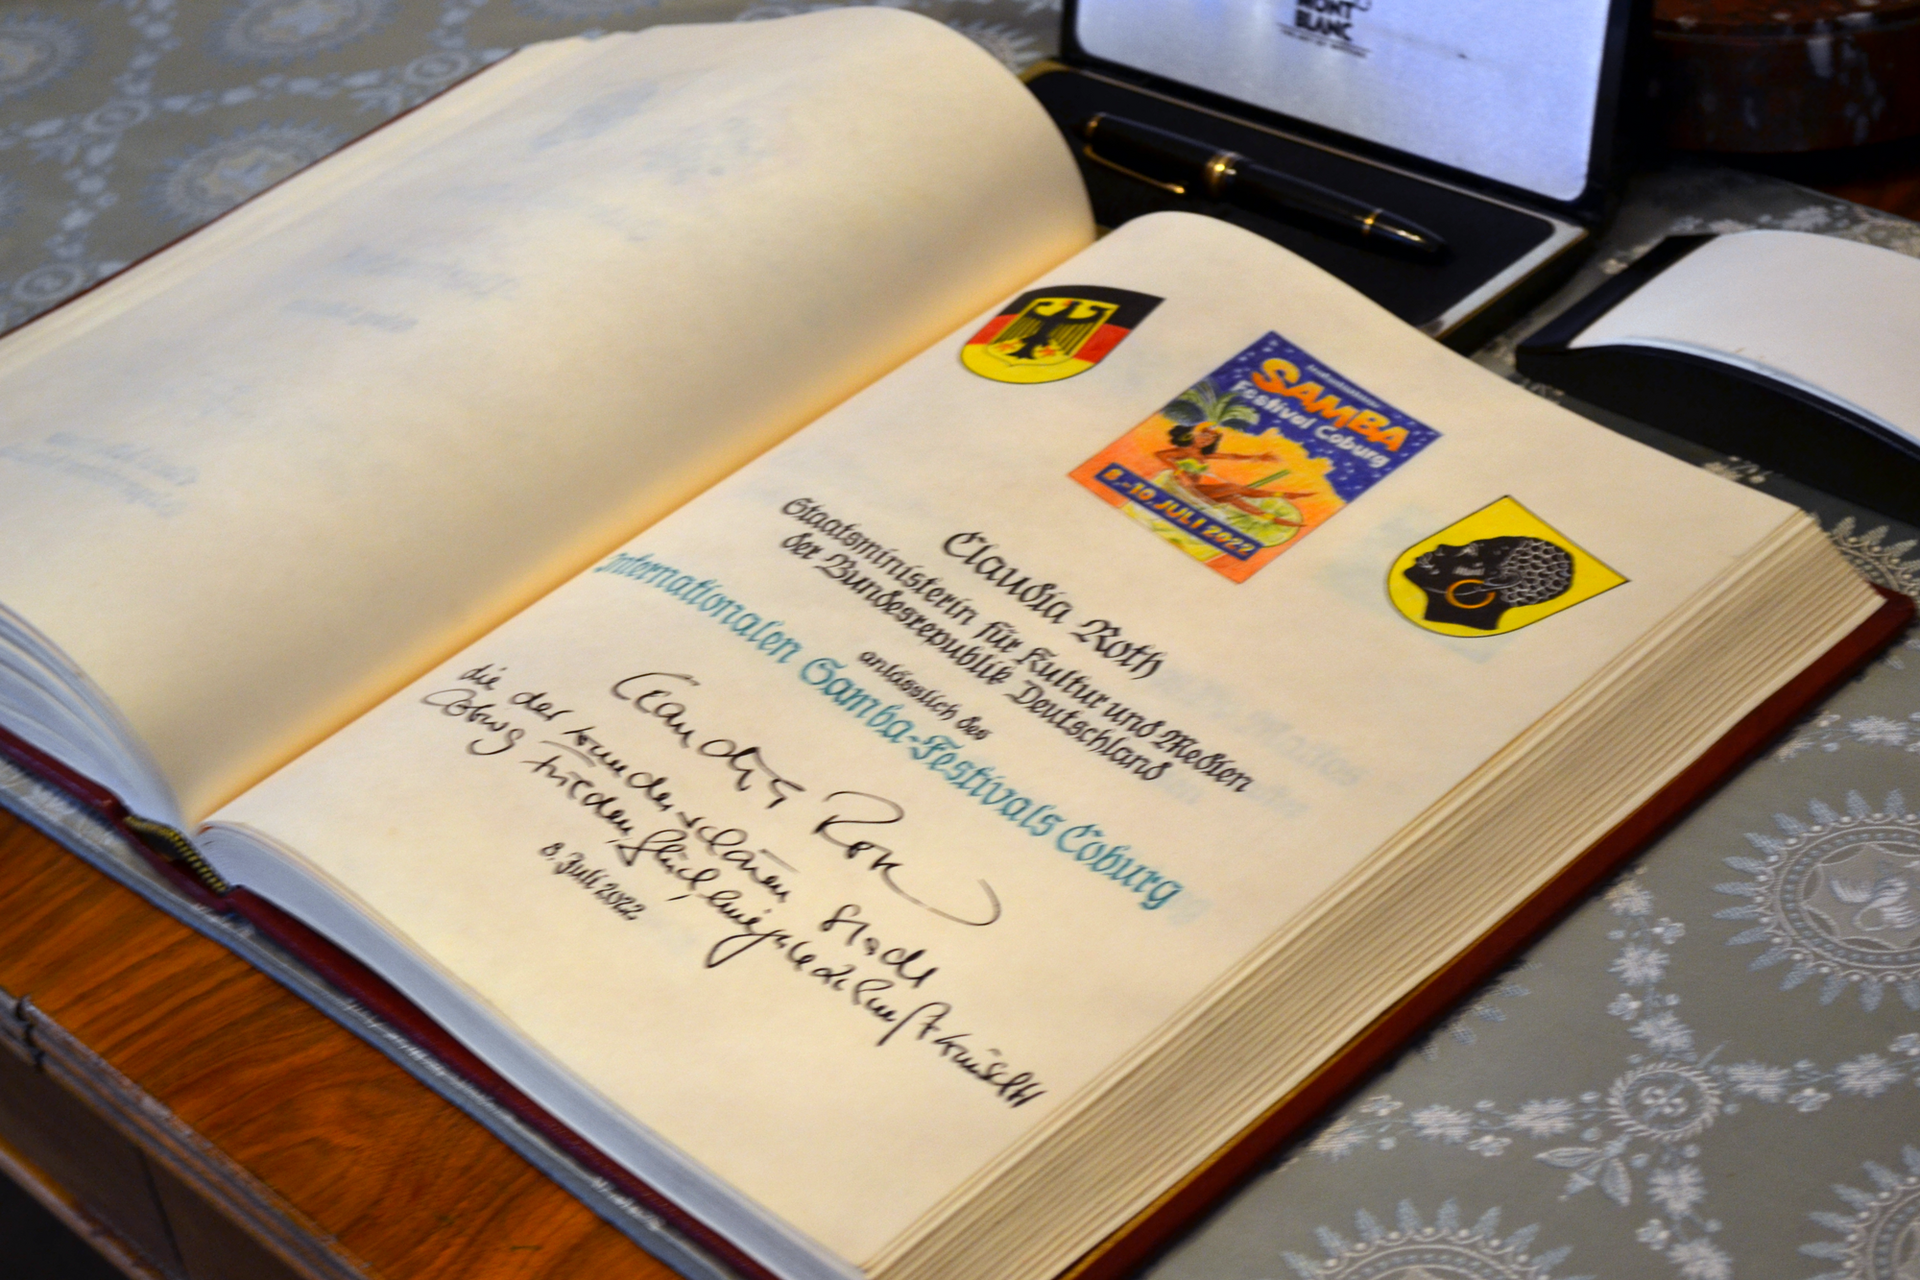 MONT
BLANC
SAMBA
Festival Coburg
8.-10. JULI 2022
Claudia Roth
Staatsministerin für Kultur und Medien
der Bundesrepublik Deutschland
anlässlich des
Internationalen Samba-Festivals Coburg
Claudia Roth
die der wunderschönen Stadt
Coburg Frieden, Glück, Zukunft wünscht
8. Juli 2022